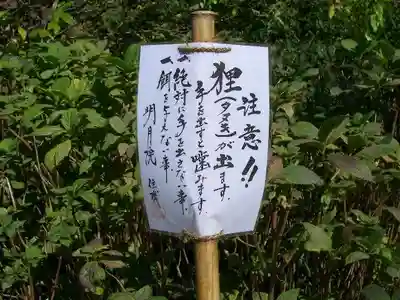 注意!!
狸(タヌキ)が出ます。
手を出すと噛みます。
一、絶対に手を出さない事
一、餌を与えない事
明月院